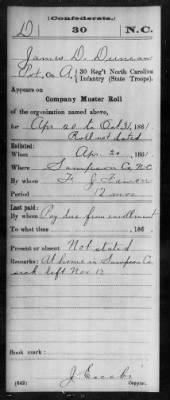 (Confederate.)
D 30 N.C.
James D. Duncan
Pvt. Co. A, 30 Reg't North Carolina Infantry (State Troops).
Appears on
Company Muster Roll
of the organization named above,
for Apr 20 to Oct 31, 1861.
Roll not dated
Enlisted:
When Apr. 20, 1861.
Where Sampson Co. N.C.
By whom F. J.
Period 12 mos
Last paid:
By whom Pay due from enrollment
To what time , 186 .
Present or absent Not stated
Remarks: At home in Sampson Co
sick left Nov 12
Book mark:
(642) J.
Copyist.